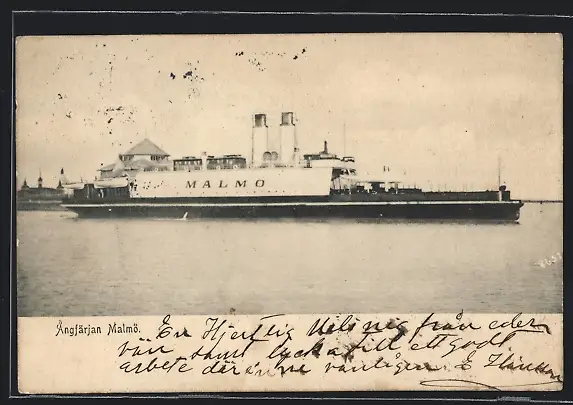 MALMÖ
Ångfärjan Malmö.
En Hjertlig Helsning från eder
vän samt lycka till ett godt
arbete där inne vänligen E